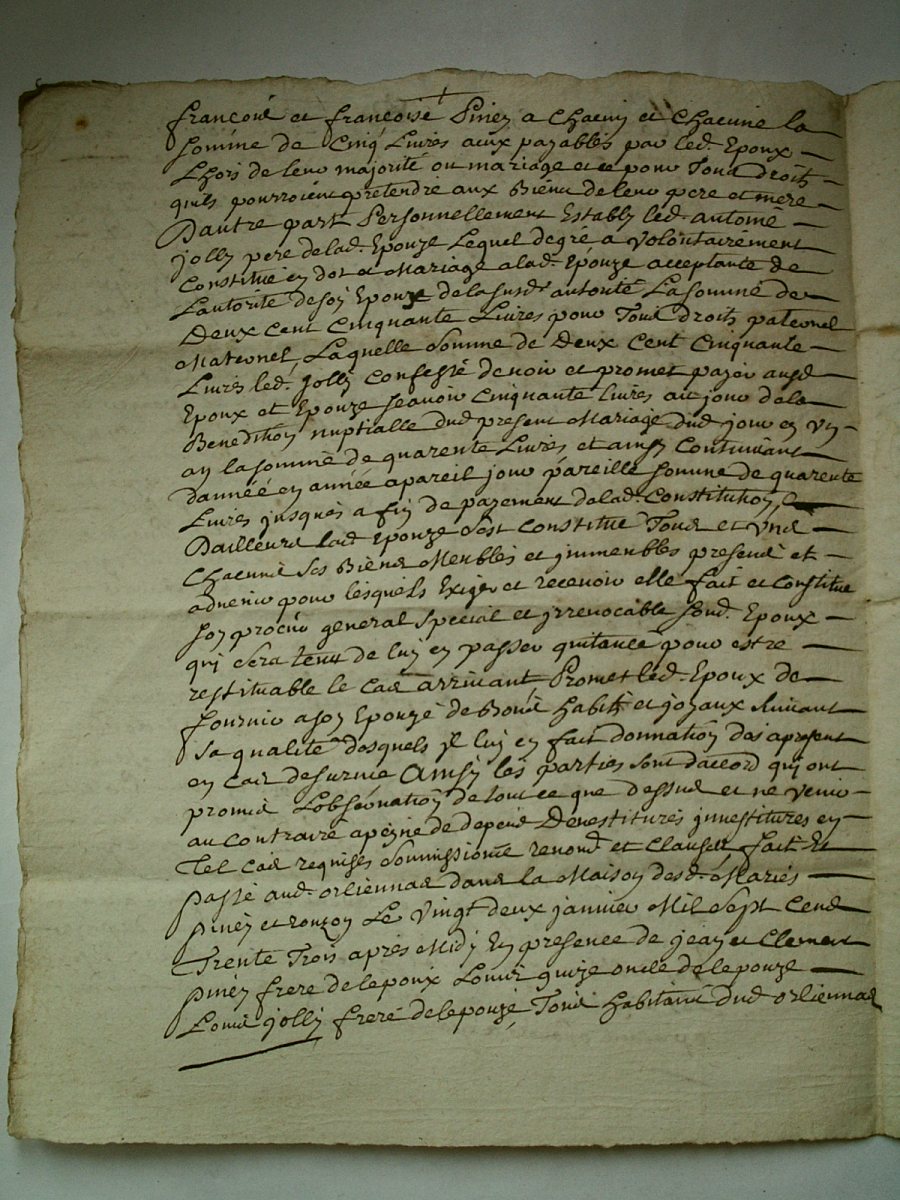 françois et françoise Piney a Chacun et Chacune la
somme de Cinq Livres aux payables par led. Epoux
Lhors de leur majorité ou mariage et ce pour Tous droits
quils pourroient pretendre aux Biens de leur pere et mere
Dautre part Personnellement Estably led. antoine
jolly pere delad. Epouze Lequel de gré a volontairement
Constitué en dot et Mariage a lad. Epouze acceptante de
Lautorité de son Epoux de la susd. autorité La somme de
Deux Cent Cinquante Livres pour Tous droits paternel
Maternel, Laquelle Somme de Deux Cent Cinquante
Livres led. Jolly Confesse devoir et promet payer ausd
Epoux et Epouze scavoir Cinquante livres au jour dela
Benediction nuptialle dud present Mariage dud jour en un
an la somme de quarente Livres et ainsy Continuant
dannéé en année a pareil jour pareille somme de quarente
Livres jusques a fin de payement delad. Constitution
Dailleurs lad Epouze sest Constitué Tous et uns
Chacuns ses Biens Meubles et jmmeubles presens et
advenir pour lesquels Exiger et recevoir elle fait et Constitue
son procur general special et jrrevocable sond. Epoux
qui sera tenu de luy en passer quitance pour estre
restituable le Cas arrivant, Promet led. Epoux de
fournir a son Epouze de Bons habits et joyaux suivant
sa qualité desquels jl luy en fait donnation des apresent
en Cas de survie Ainsy les parties sont daccord qui ont
promis Lobservation de tout ce que dessus et ne venir
au Contraire a peyne de depens Devestitures jnvestitures en
Tel Cas requises Soumissions renond. et Clauses fait Et
passé aud. orliennas dans la Maison desd. Mariés
piney et ronzon Le vingt deux janvier Mil Sept Cens
Trente Trois apres Midy En presence de jean et Clement
piney frere de lepoux Louis oncle de lepouze
Louis jolly frere de lepouze, Tous habitans dud orliennas